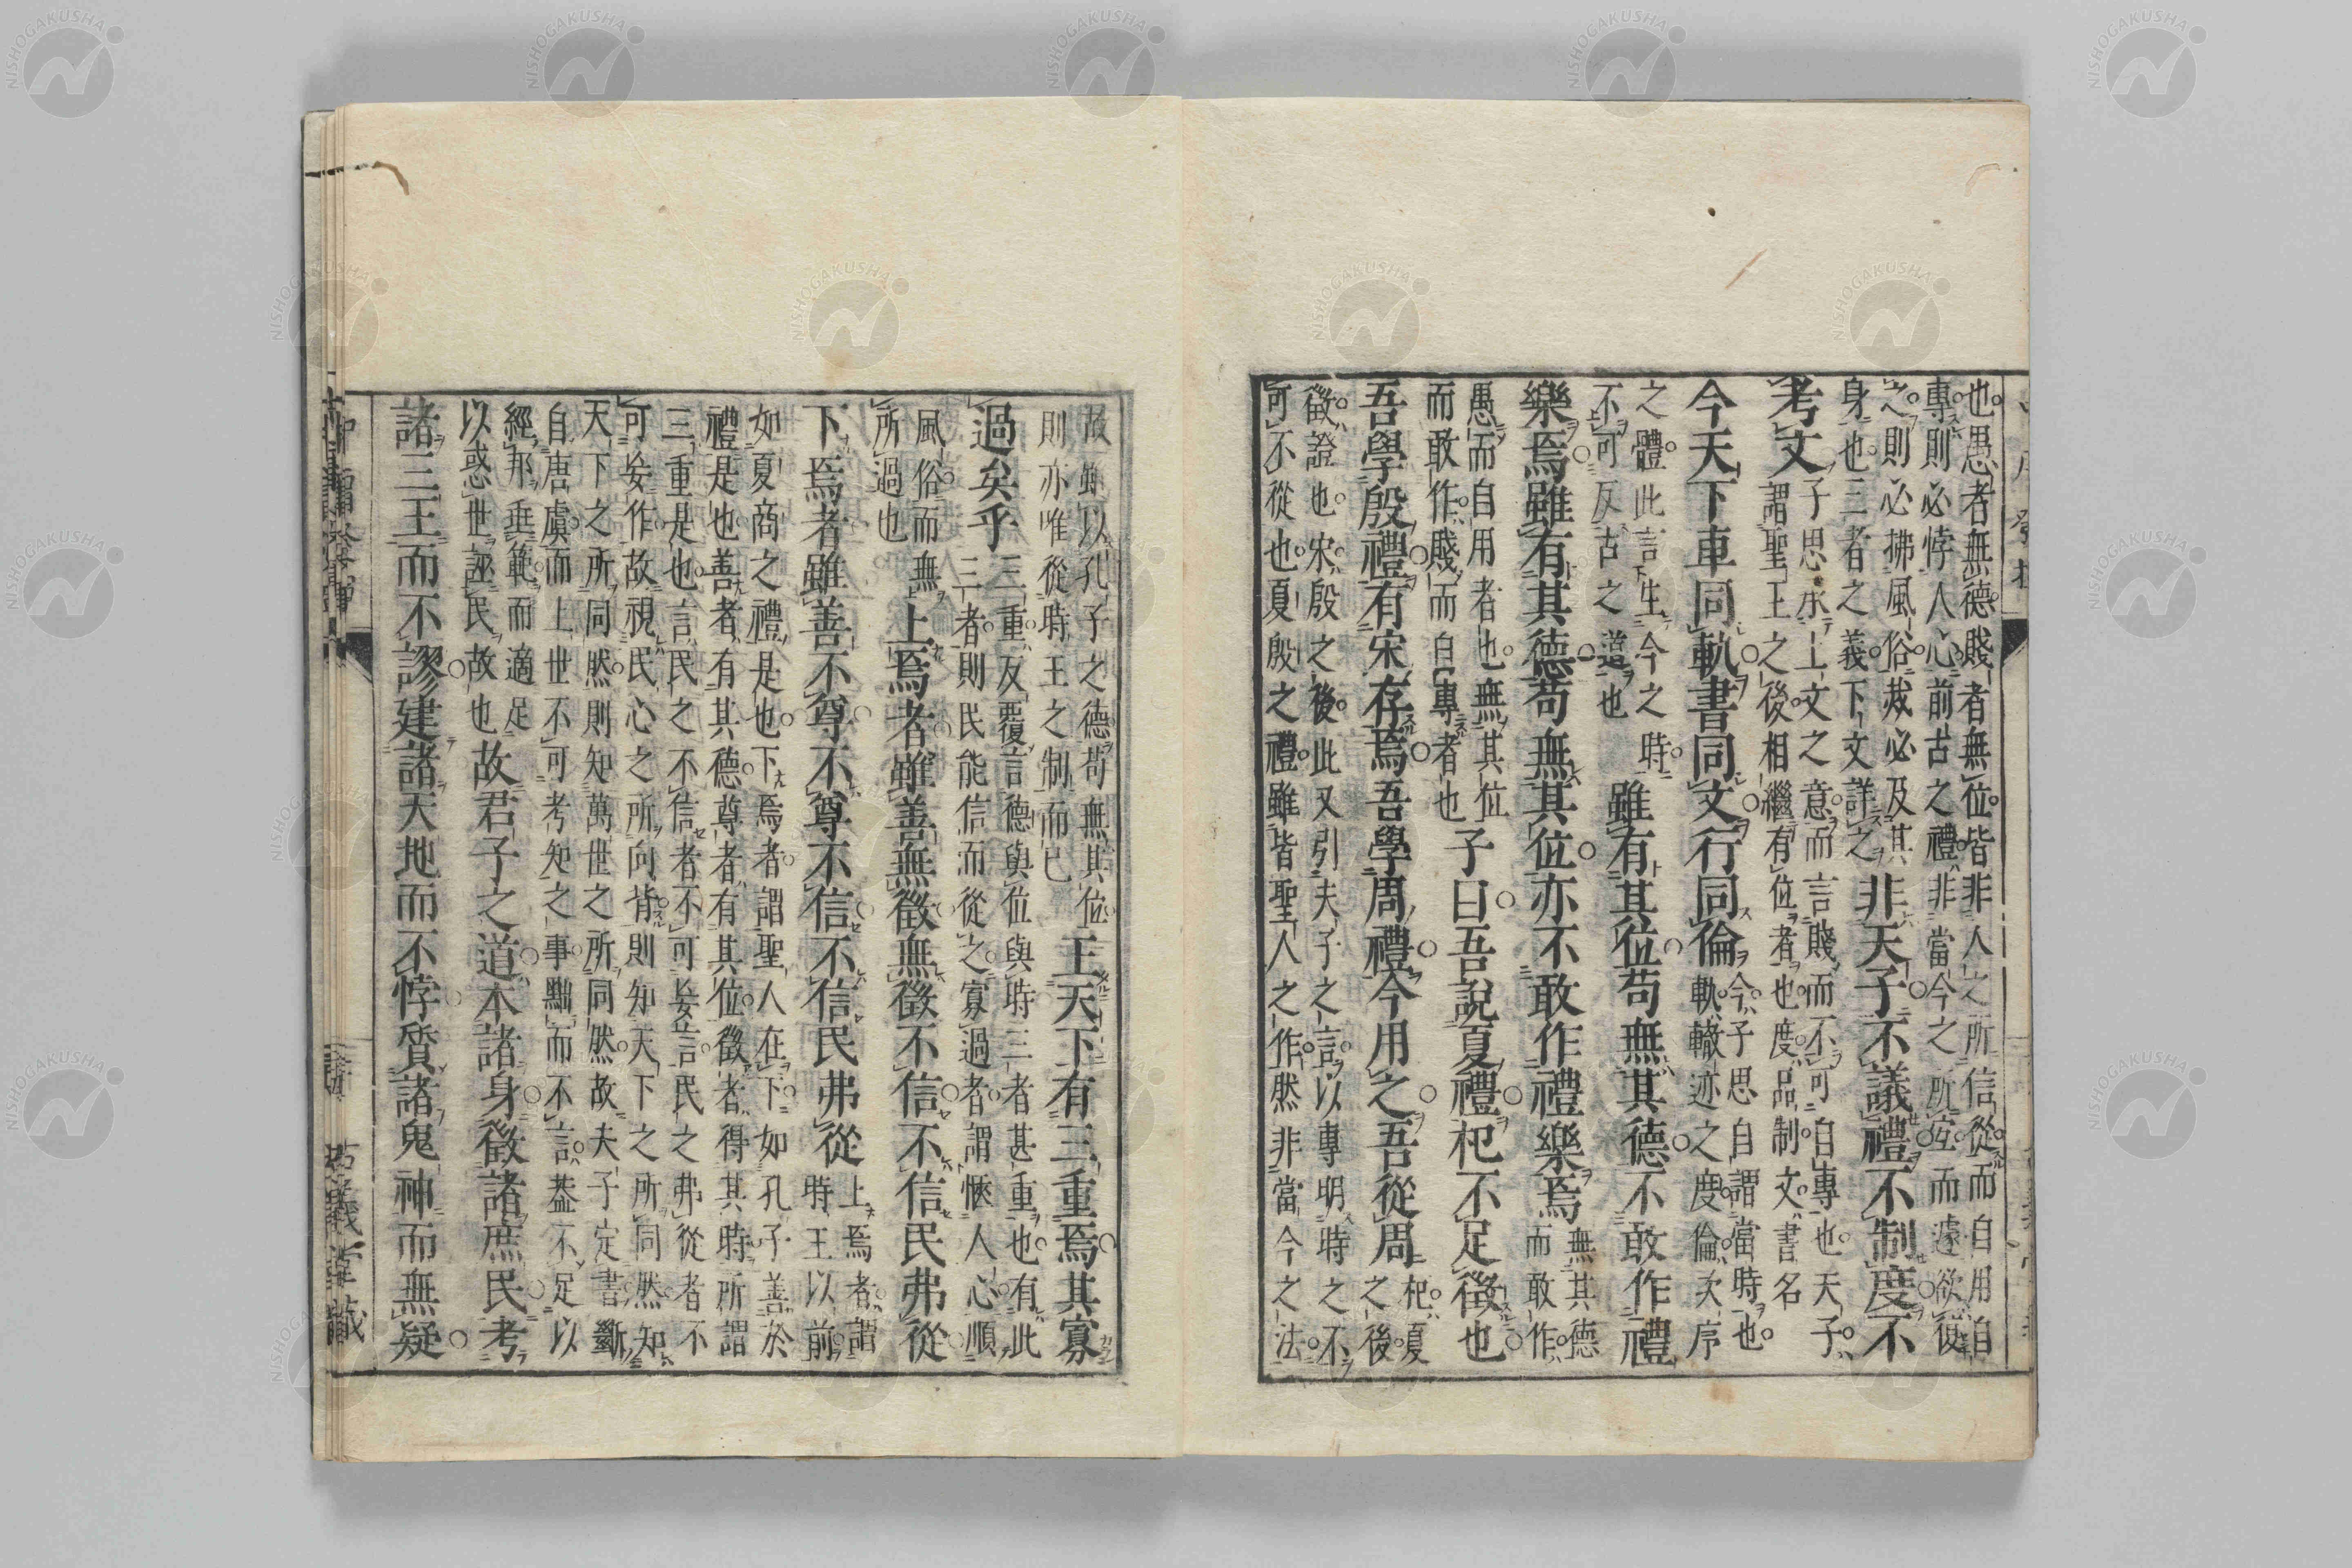 也愚者無德賤者無位皆非人之所信從而自用自
專則必悖人心前古之禮非當今之所宜而遽欲復
之則必拂風俗烖必及其
身也三者之義下文詳之
非天子不議禮不制度不
考文
子思承上文之意而言賤而不可自專也天子
謂聖王之後相繼有位者也度品制文書名
今天下車同軌書同文行同倫
今子思自謂當時也
軌轍迹之度倫次序
之體此言生今之時
不可反古之道也
雖有其位苟無其德不敢作禮
樂焉雖有其德苟無其位亦不敢作禮樂焉
無其德
而敢作
愚而自用者也無其位
而敢作賤而自專者也
子曰吾說夏禮杞不足徵也
吾學殷禮有宋存焉吾學周禮今用之吾從周
杞夏
之後
徵證也宋殷之後此又引夫子之言以專明時之不
可不從也夏殷之禮雖皆聖人之作然非當今之法
故雖以孔子之德苟無其位
則亦唯從時王之制而已
王天下有三重焉其寡
過矣乎
三重反覆言德與位與時三者甚重也有此
三者則民能信而從之寡過者謂愜人心順
風俗而無
所過也
上焉者雖善無徵無徵不信不信民弗從
下焉者雖善不尊不尊不信不信民弗從
上焉者謂
時王以前
如夏商之禮是也下焉者謂聖人在下如孔子善於
禮是也善者有其德尊者有其位徵者得其時所謂
三重是也言民之不信者不可妄言民之弗從者不
可妄作故視民心之所向皆則知天下之所同然知
天下之所同然則知萬世之所同然故夫子定書斷
自唐虞而上世不可考知之事黜而不言蓋不足以
經邦垂範而適足
以惑世誣民故也
故君子之道本諸身徵諸庶民考
諸三王而不謬建諸天地而不悖質諸鬼神而無疑
古義堂藏
NISHOGAKUSHA